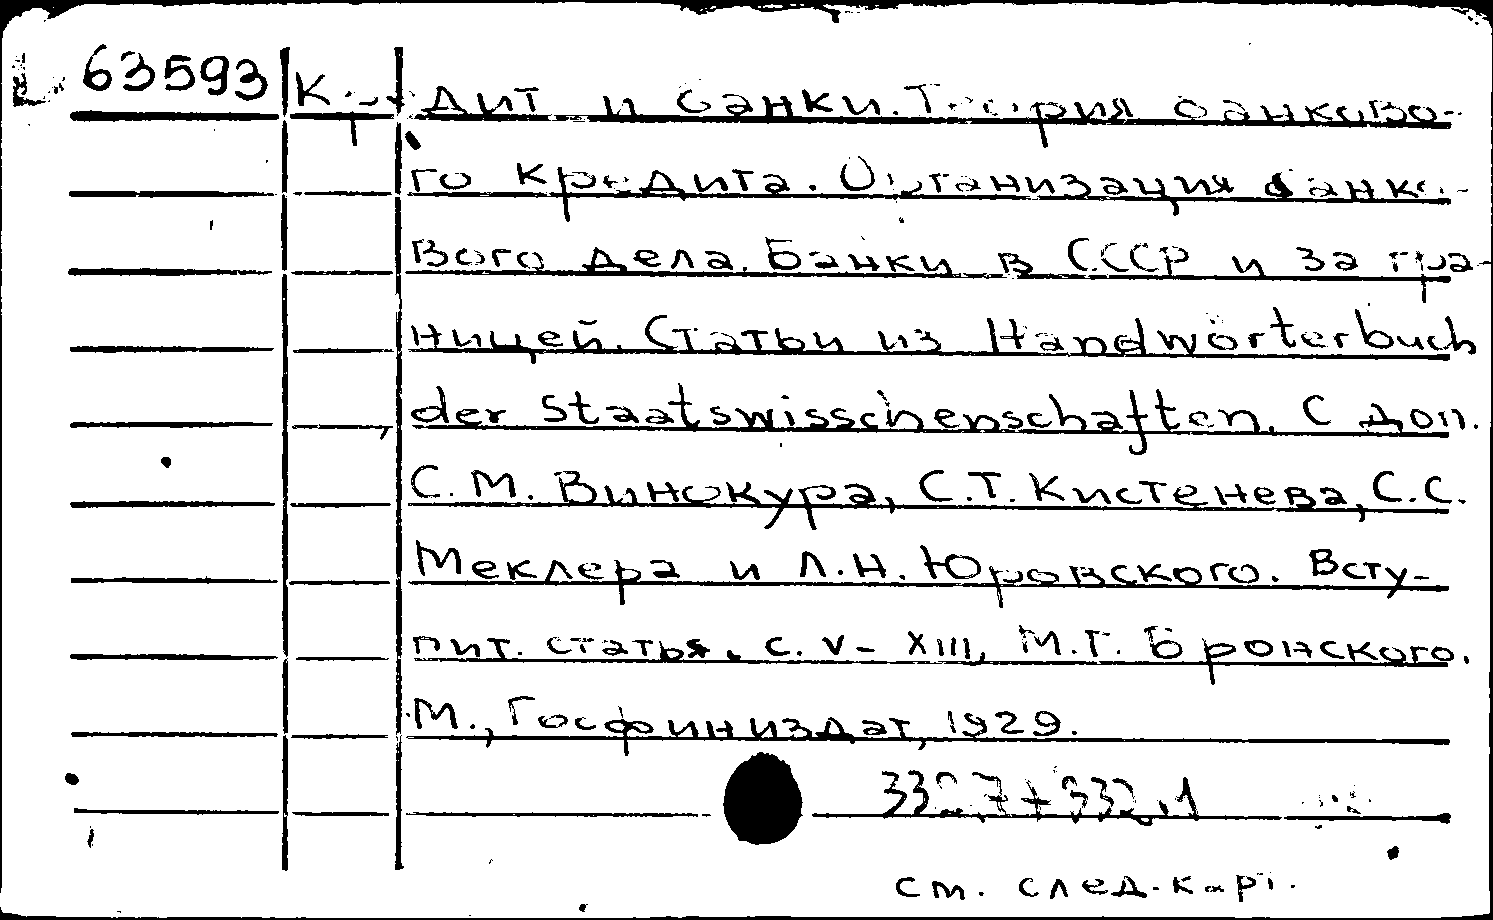 63593 Кредит и банки. Теория банково-
го кредита. Организация банко-
вого дела. Банки в СССР и за гра-
ницей. Статьи из Handwörterbuch
der Staatswissenschaften. С доп.
С.М. Винокура, С.Т. Кистенева, С.С.
Меклера и Л.Н. Юровского. Всту-
пит. статья, с. V-XIII, М.Г. Бронского.
М., Госфиниздат, 1929.
332.7+332.1
см. след. карт.